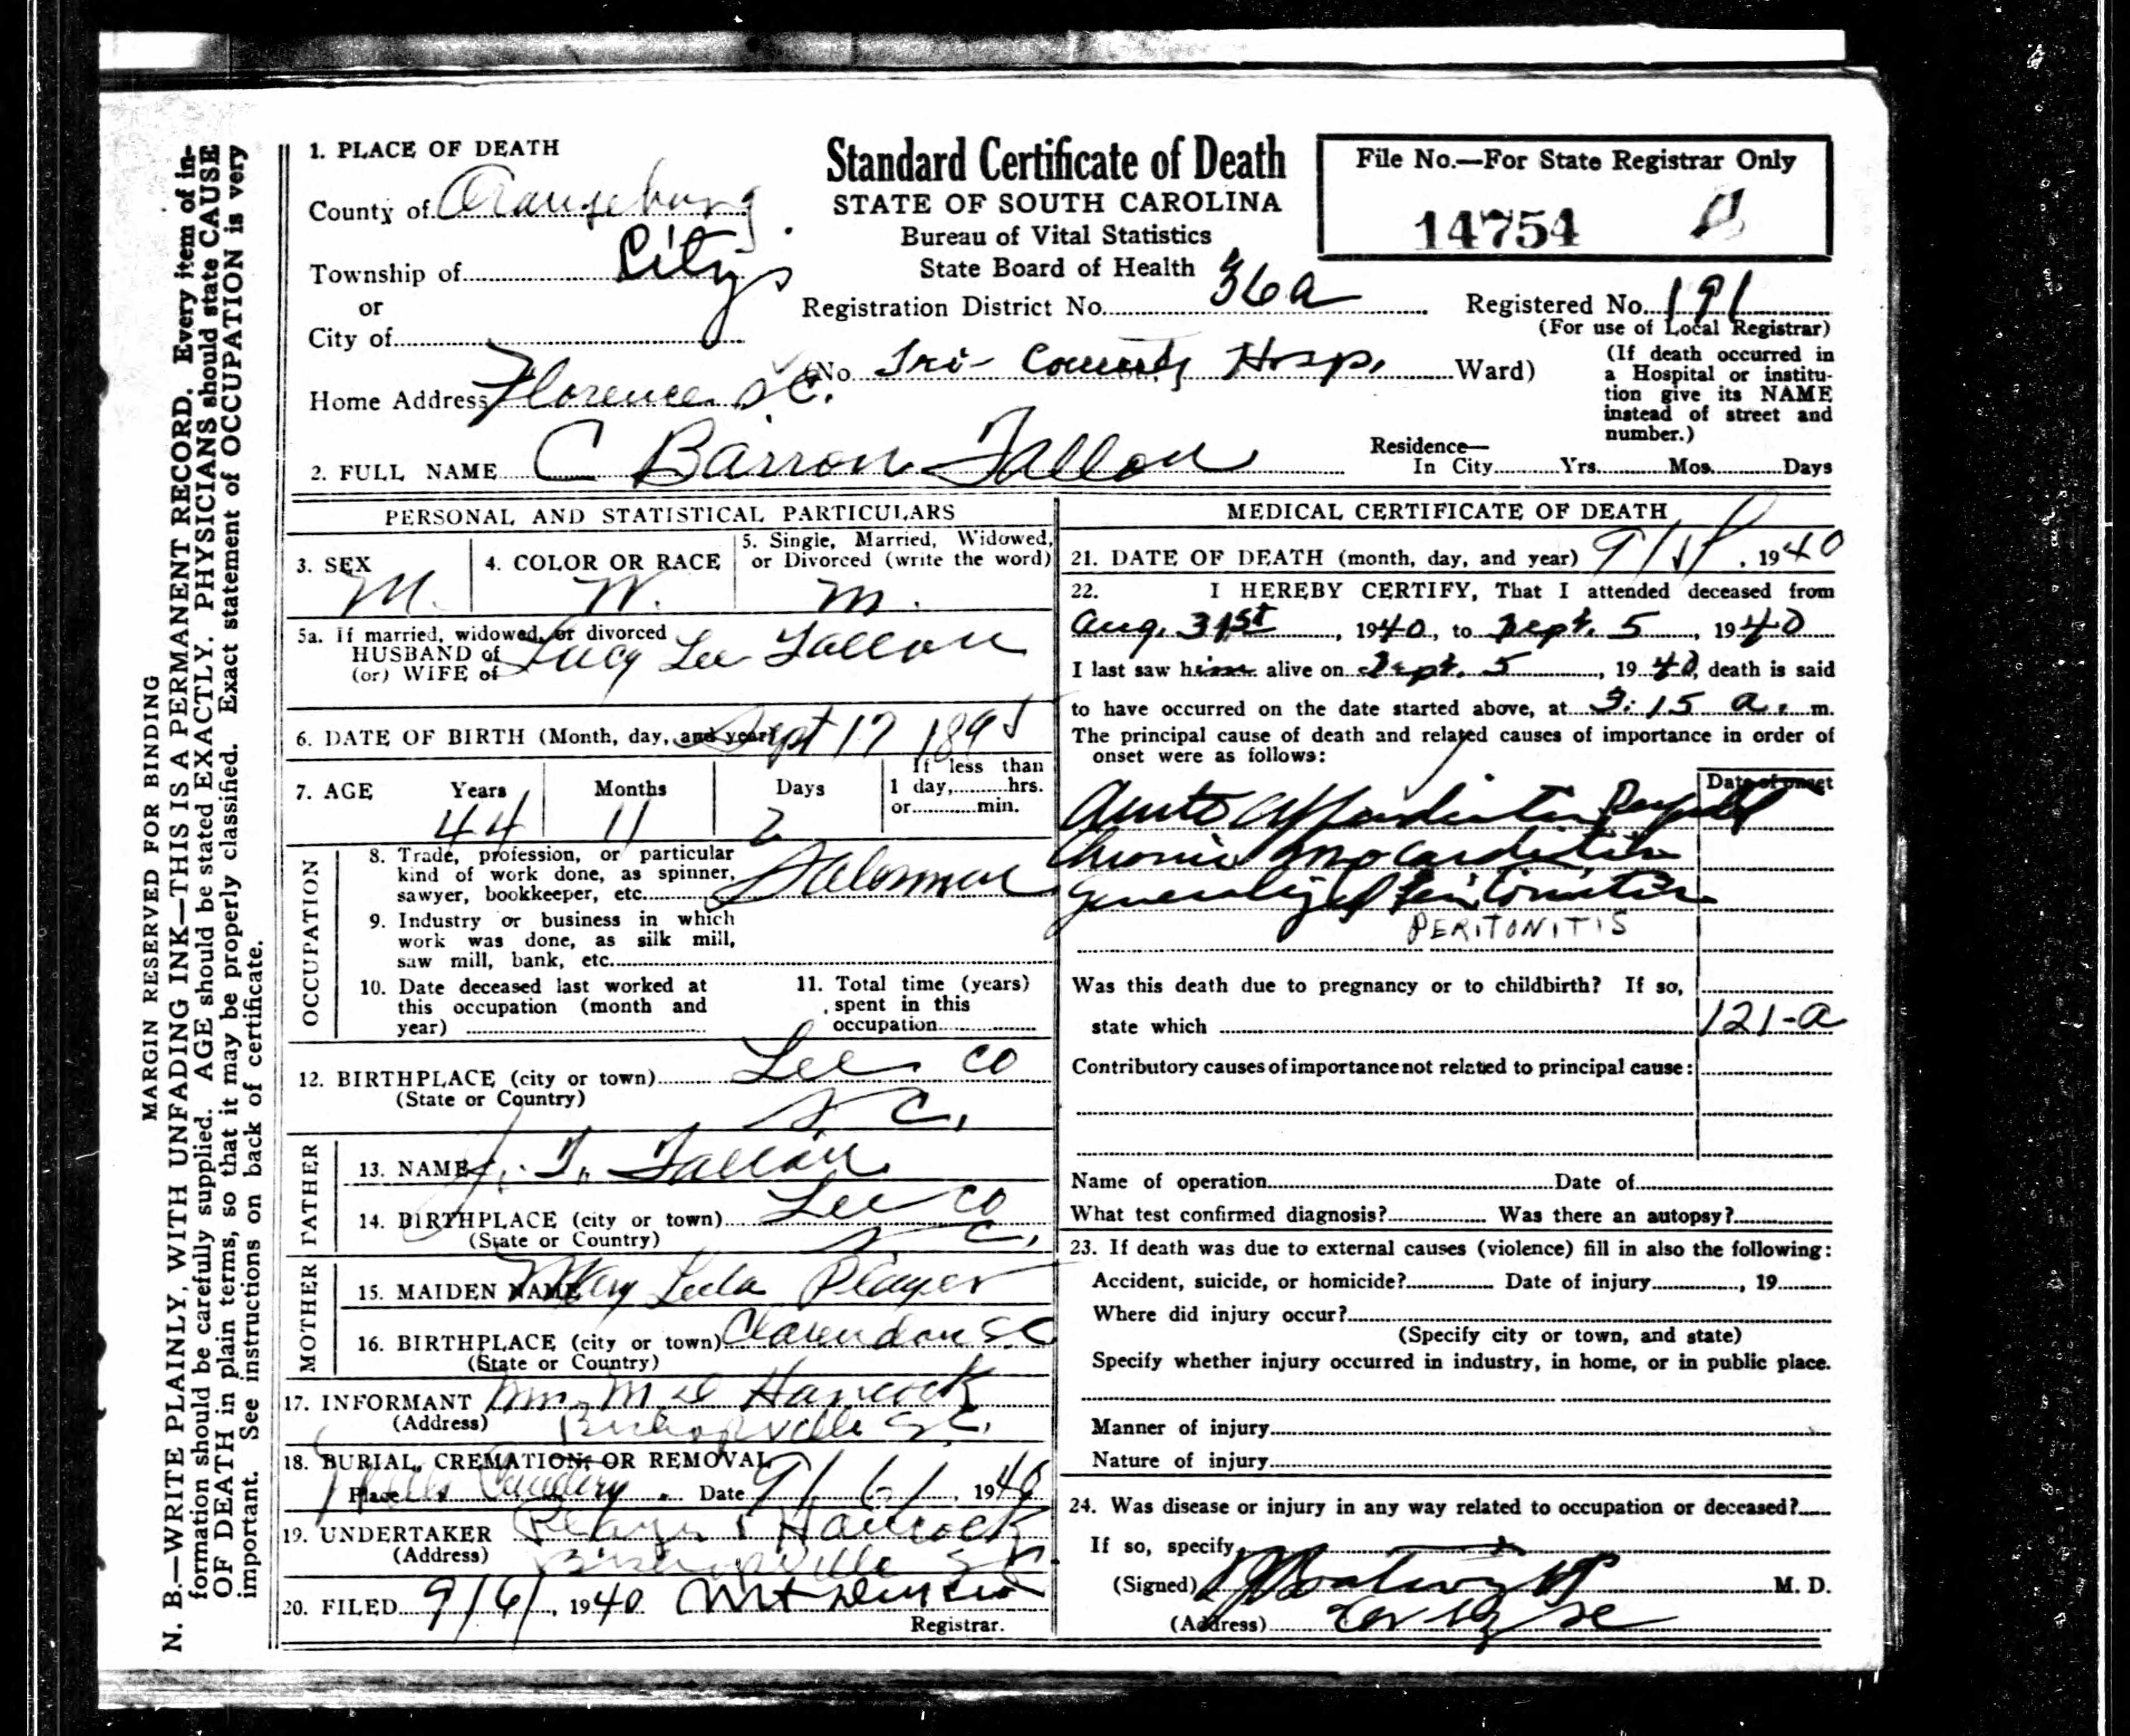 MARGIN RESERVED FOR BINDING
N. B.—WRITE PLAINLY, WITH UNFADING INK—THIS IS A PERMANENT RECORD. Every item of in-
formation should be carefully supplied. AGE should be stated EXACTLY. PHYSICIANS should state CAUSE
OF DEATH in plain terms, so that it may be properly classified. Exact statement of OCCUPATION is very
important. See instructions on back of certificate.
Standard Certificate of Death
STATE OF SOUTH CAROLINA
Bureau of Vital Statistics
State Board of Health
File No.—For State Registrar Only
14754
1. PLACE OF DEATH
County of Orangeburg
Township of City
or
City of
Registration District No. 36a
Registered No. 191
(For use of Local Registrar)
(No. Tri-County Hosp. Ward)
(If death occurred in
a Hospital or institu-
tion give its NAME
instead of street and
number.)
Home Address Florence S.C.
2. FULL NAME C Barron Fallon
Residence—
In City Yrs. Mos. Days
PERSONAL AND STATISTICAL PARTICULARS
3. SEX M.
4. COLOR OR RACE W.
5. Single, Married, Widowed,
or Divorced (write the word)
m.
5a. If married, widowed, or divorced
HUSBAND of
(or) WIFE of
Lucy Lee Fallon
6. DATE OF BIRTH (Month, day, and year) Sept 17 1895
7. AGE Years Months Days
44 11 2
If less than
1 day, hrs.
or min.
OCCUPATION
8. Trade, profession, or particular
kind of work done, as spinner,
sawyer, bookkeeper, etc. Salesman
9. Industry or business in which
work was done, as silk mill,
saw mill, bank, etc.
10. Date deceased last worked at
this occupation (month and
year)
11. Total time (years)
spent in this
occupation
12. BIRTHPLACE (city or town) Lee Co
(State or Country) S C.
FATHER
13. NAME J. T. Fallon
14. BIRTHPLACE (city or town) Lee Co
(State or Country) S C.
MOTHER
15. MAIDEN NAME Mary Leila Player
16. BIRTHPLACE (city or town) Clarendon SC
(State or Country)
17. INFORMANT Hancock
(Address) Bishopville S.C.
18. BURIAL, CREMATION, OR REMOVAL
Place Cemetery Date 9/6/, 1940
19. UNDERTAKER Player & Hancock
(Address) Bishopville S C
20. FILED 9/6/, 1940
Registrar.
MEDICAL CERTIFICATE OF DEATH
21. DATE OF DEATH (month, day, and year) 9/5/, 1940
22. I HEREBY CERTIFY, That I attended deceased from
Aug. 31st, 1940, to Sept. 5, 1940
I last saw him alive on Sept. 5, 1940, death is said
to have occurred on the date started above, at 3:15 a. m.
The principal cause of death and related causes of importance in order of
onset were as follows:
Date of onset
Acute Appendicitis Ruptured
Chronic Myocarditis
Generalized Peritonitis
PERITONITIS
Was this death due to pregnancy or to childbirth? If so,
state which
121-a
Contributory causes of importance not related to principal cause:
Name of operation Date of
What test confirmed diagnosis? Was there an autopsy?
23. If death was due to external causes (violence) fill in also the following:
Accident, suicide, or homicide? Date of injury, 19
Where did injury occur?
(Specify city or town, and state)
Specify whether injury occurred in industry, in home, or in public place.
Manner of injury
Nature of injury
24. Was disease or injury in any way related to occupation or deceased?
If so, specify
(Signed) M. D.
(Address)